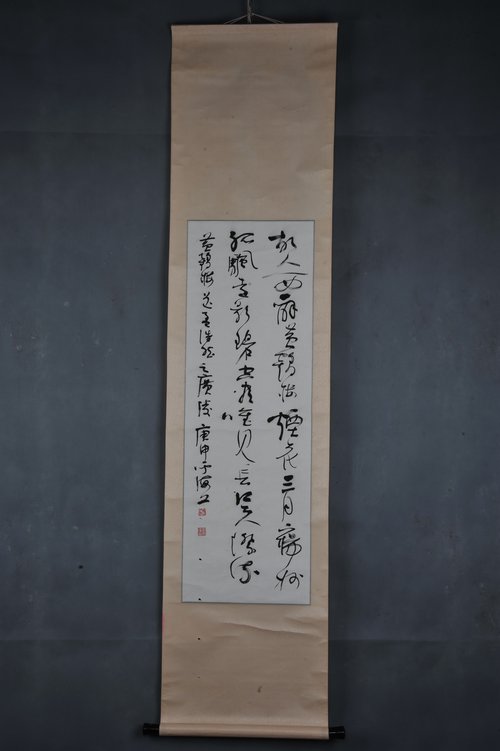 故人西辭黃鶴樓煙花三月下揚州
孤颿遠影碧空盡惟見長江天際流
黃鶴樓送孟浩然之廣陵 庚申